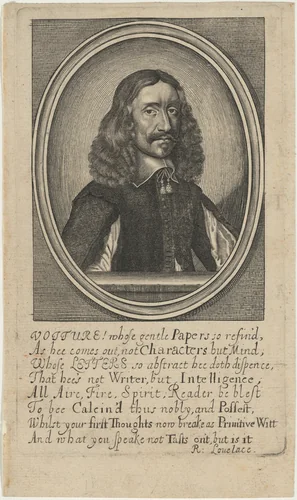 VOITURE! whose gentle Papers so refin'd,
As hee comes out, not Characters but Mind,
Whose LETTERS so abstract hee doth dispence,
That hee's not Writer, but Intelligence,
All Aire, Fire, Spirit, Reader be blest
To bee Calcin'd thus nobly, and Possest,
Whilst your first Thoughts now breake as Primitive Witt
And what you speake not Tasts on't, but is it
R: Lovelace.